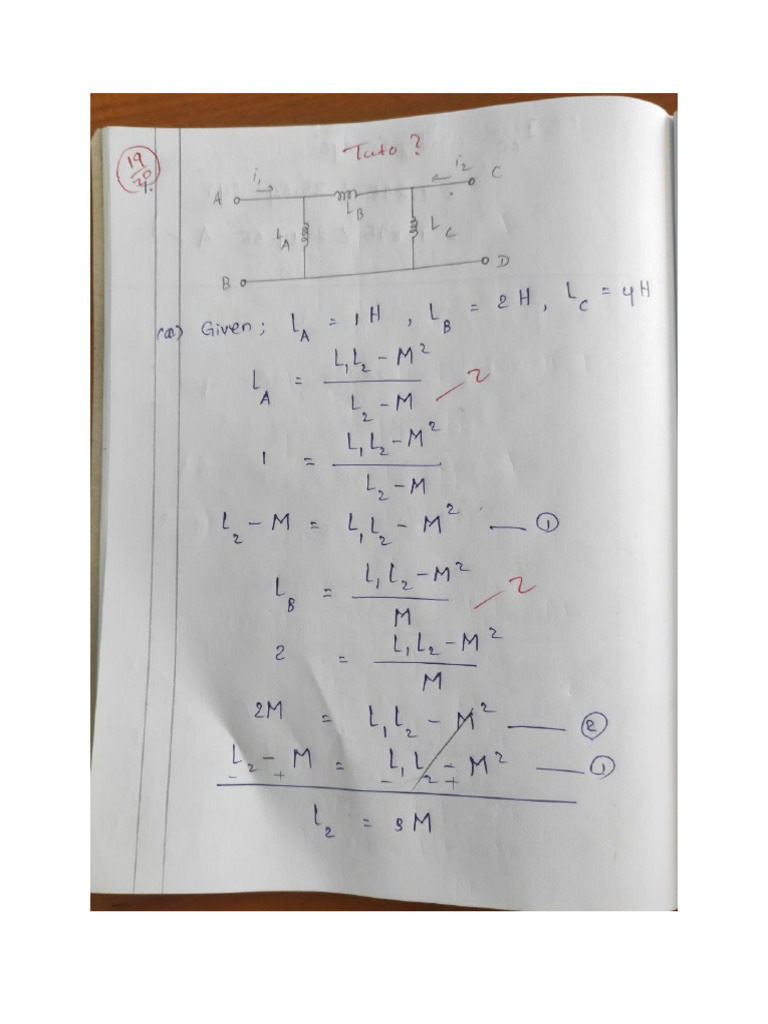 Tuto ?
19/20
1.
i₁ i₂ C
A L_B
L_A L_C
B D
(a) Given; L_A = 1H , L_B = 2H, L_C = 4H
L_A = (L₁L₂ - M²) / (L₂ - M) 2
1 = (L₁L₂ - M²) / (L₂ - M)
L₂ - M = L₁L₂ - M² — ①
L_B = (L₁L₂ - M²) / M 2
2 = (L₁L₂ - M²) / M
2M = L₁L₂ - M² — ②
L₂ - M = L₁L₂ - M² — ①
- + - +
L₂ = 3M